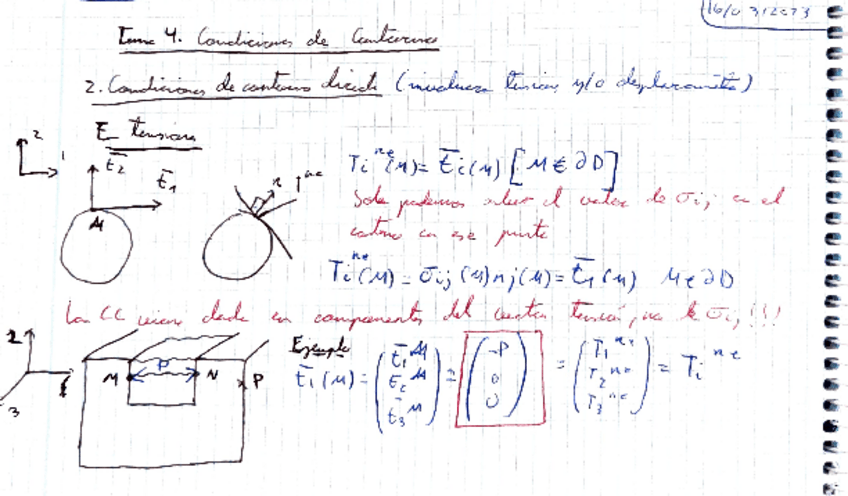 Tema 4. Condiciones de Contorno
2. Condiciones de contorno directo (involucra tensión y/o desplazamientos)
E tensiones
2
1
t̄₂
t̄₁
M
n
Tᵢⁿᵉ(M) = t̄ᵢ(M) [M ∈ ∂D]
Solo podemos saber el valor de σᵢⱼ en el
contorno en ese punto
Tᵢⁿᵉ(M) = σᵢⱼ(M)nⱼ(M) = t̄₁(M) M ∈ ∂D
Las CC vienen dada en componentes del vector tensión, no de σᵢⱼ!!!
2
3
M
P
N
P
Ejemplo
t̄₁(M) = (t̄₁ᴹ t̄₂ᴹ t̄₃ᴹ) = (-P 0 0) = (T₁ⁿᵉ T₂ⁿᵉ T₃ⁿᵉ) = Tᵢⁿᵉ